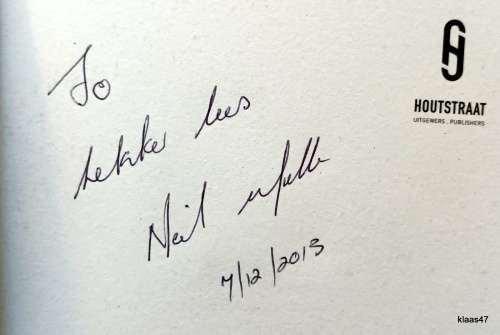 HOUTSTRAAT
UITGEWERS . PUBLISHERS
Jo
Lekker lees
Neil
7/12/2013
klaas47